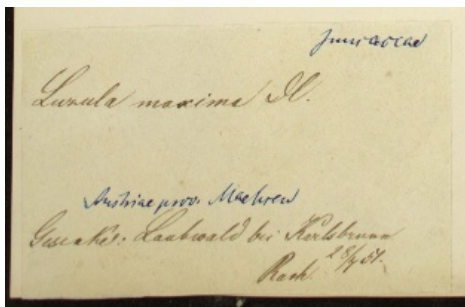 Juncaceae
Luzula maxima DC.
Austriae prov. Maehren
Gesenke: Laubwald bei Karlsbrunn